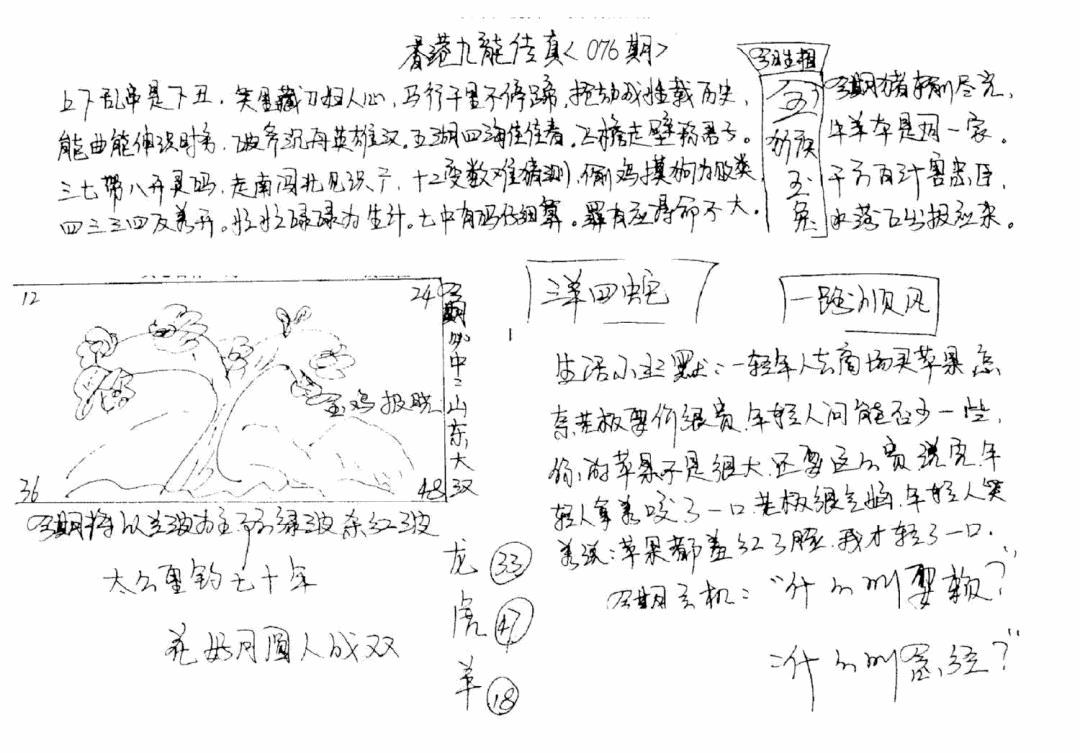 香港九龍传真〈076期〉
上下乱串是下丑，笑里藏刀妇人心，马行千里不停蹄，摇动战挂载历史，
能曲能伸识时务，破斧沉舟英雄汉。五湖四海佳佳春。飞檐走壁称君子。
三七带八开灵码，走南闯北见识广，十二变数难猜测，偷鸡摸狗为败类
四三三四反美开。忙忙碌碌为生计。七中有码仔细算。罪有应得命不大。
今期猪
牛羊本是同一家。
千方百计害忠臣，
水落石出报应来。
玉兔
12
24
今期必中：山东大汉
金鸡报晓
36
48
今期将以蓝波为主 防绿波杂红波
太公垂钓七十年
花好月圆人成双
三羊四蛇
一路顺风
龙 33
虎 47
羊 18
生活小幽默：一轻年人去商场买苹果怎
奈老板要价很贵，年轻人问能否少一些，
你的苹果不是很大还要这么贵说完年
轻人拿着咬了一口。老板很气恼，年轻人笑
着说：苹果都羞红了脸，我才轻了一口。
今期玄机："什么叫耍赖？"
"什么叫